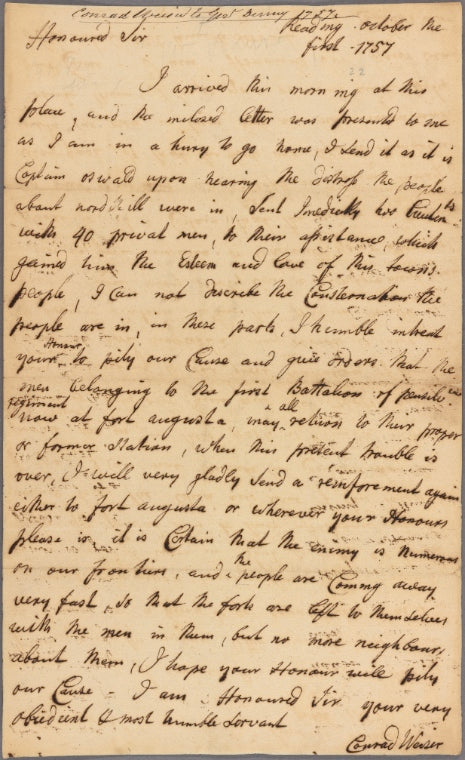 Conrad Weiser to Govr Denny 1757.
Reading October the
Honoured Sir first 1757
22
I arrived this morning at this
place, and the inclosed letter was presented to me
as I am in a hury to go home, I send it as it is
Captain oswald upon hearing the distress the people
about nord kill were in, sent Imedietly two
with 40 privat men, to their assistance, which
gained him the Esteem and love of this towns
people, I Can not discribe the Consternation the
people are in, in these parts, I humble intreat
your Honour to pity our Cause and give orders that the
men belonging to the first Battalion of
regiment now at fort augusta, may all return to their proper
or former Station, when this present trouble is
over, I will very gladly send a reinforement again
either to fort augusta or wherever your Honours
please is, it is Certain that the enimy is Numerous
on our frontiers, and the people are Coming away
very fast, so that the forts are left to themselves
with the men in them, but no more neighbours
about them, I hope your Honour will pity
our Cause - I am Honoured Sir your very
obiedient & most humble servant
Conrad Weiser